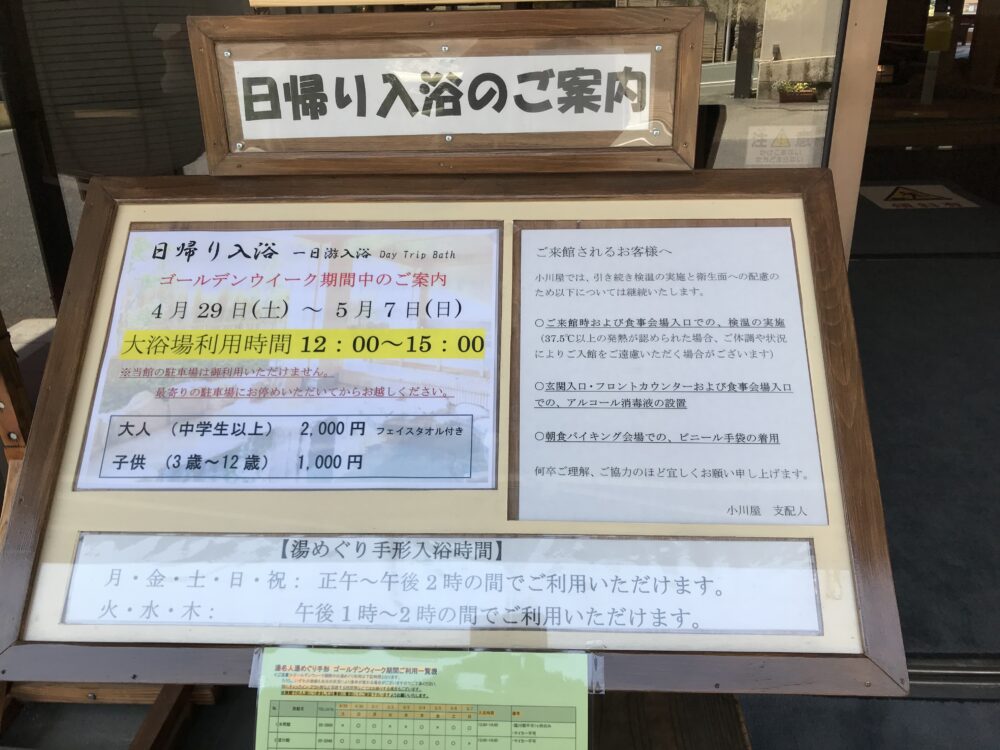 日帰り入浴のご案内
日帰り入浴 一日游入浴 Day Trip Bath
ゴールデンウイーク期間中のご案内
4月29日(土) ～ 5月7日(日)
大浴場利用時間 12：00～15：00
※当館の駐車場は御利用いただけません。
最寄りの駐車場にお停めいただいてからお越しください。
大人 （中学生以上） 2,000円 フェイスタオル付き
子供 （3歳～12歳） 1,000円
ご来館されるお客様へ
小川屋では、引き続き検温の実施と衛生面への配慮の
ため以下については継続いたします。
○ご来館時および食事会場入口での、検温の実施
（37.5℃以上の発熱が認められた場合、ご体調や状況
によりご入館をご遠慮いただく場合がございます）
○玄関入口・フロントカウンターおよび食事会場入口
での、アルコール消毒液の設置
○朝食バイキング会場での、ビニール手袋の着用
何卒ご理解、ご協力のほど宜しくお願い申し上げます。
小川屋 支配人
【湯めぐり手形入浴時間】
月・金・土・日・祝： 正午～午後2時の間でご利用いただけます。
火・水・木： 午後1時～2時の間でご利用いただけます。
湯名人湯めぐり手形 ゴールデンウィーク期間ご利用一覧表